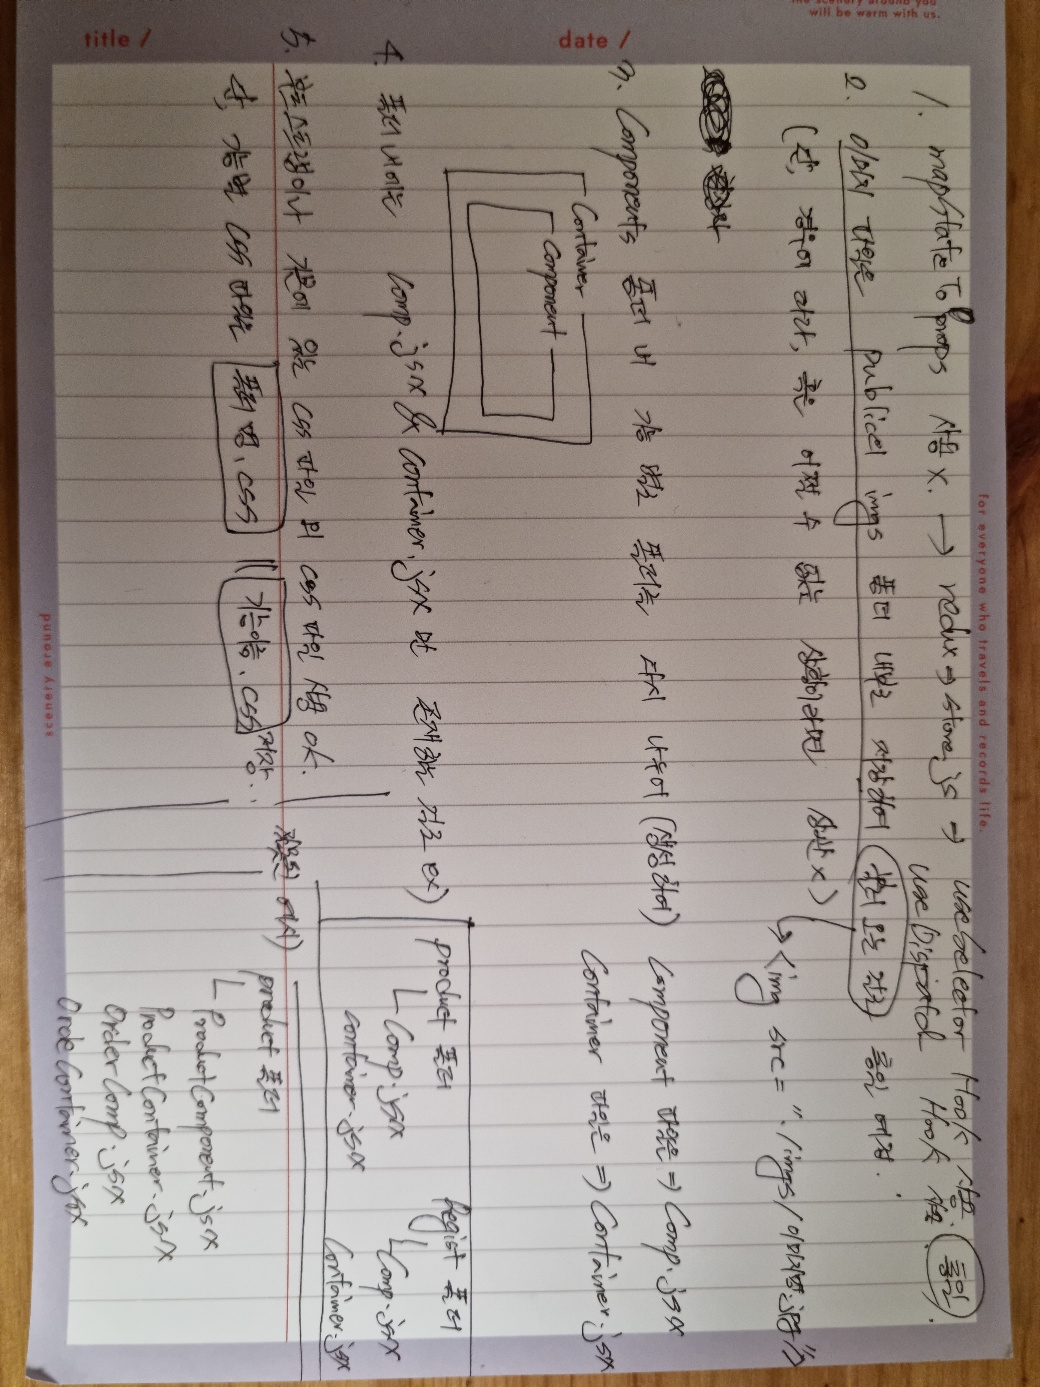 for everyone who travels and records life.
1. mapStateToProps 사용 x. → redux → store.js → useSelector Hook 사용.
useDispatch Hook 사용. 통일
2. 이미지 파일은 public의 imgs 폴더 내부로 저장하여 불러 오는 걸로 통일 예정.
(단, 경우에 따라, 혹은 어쩔 수 없는 상황이라면 상관 x)
→ <img src = "./imgs/이미지명.jpg"/>
3. Components 폴더 내 기능 별로 폴더를 다시 나누어 (생성하여) Component 파일은 ⇒ Comp.jsx
Container 파일은 ⇒ Container.jsx
Container
Component
4. 폴더 내에는 Comp.jsx & Container.jsx 만 존재하는 걸로 ex)
product 폴더
└ Comp.jsx
container.jsx
Regist 폴더
└ Comp.jsx
Container.jsx
5. 부트스트랩이나 기존에 있는 css 파일 외 css 파일 사용 ok.
단, 기능별 css 파일은 폴더명.css || 기능이름.css 저장..
잘못된 예시)
product 폴더
└ ProductComponent.jsx
ProductContainer.jsx
OrderComp.jsx
OrdeContainer.jsx
date /
title /
scenery around
will be warm with us.